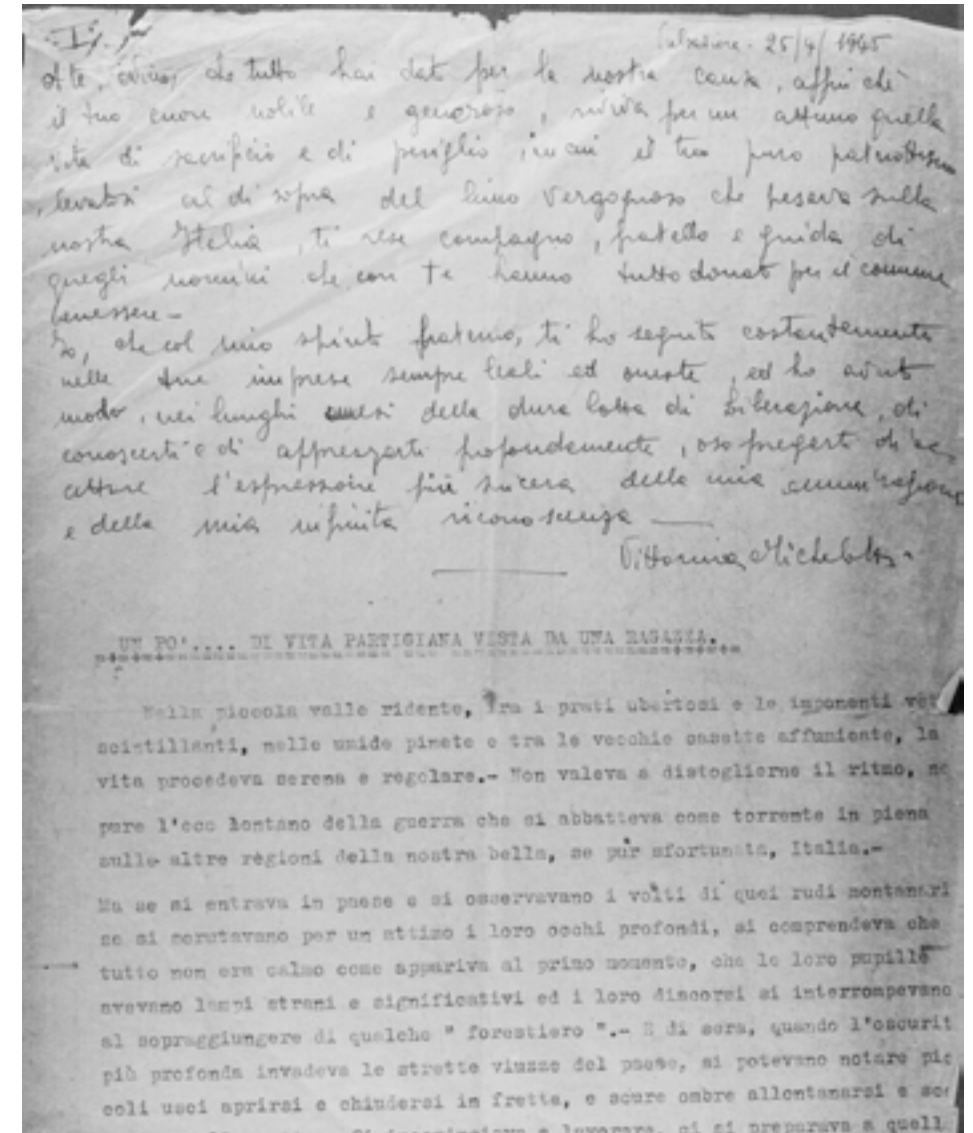 25/4/1945
A te, che tutto hai dato per la nostra causa, affinchè
il tuo cuore nobile e generoso, riviva per un attimo quella
vita di sacrificio e di periglio, in cui il tuo puro patriottismo
, levatosi al di sopra del limo vergognoso che pesava sulla
nostra Italia, ti rese compagno, fratello e guida di
quegli uomini che con te hanno tutto donato per il comune
benessere -
Io, che col mio spirito fraterno, ti ho seguito costantemente
nelle tue imprese sempre leali ed oneste, ed ho avuto
modo, nei lunghi mesi della dura lotta di liberazione, di
conoscerti e di apprezzarti profondamente, oso pregarti di ac-
cettare l'espressione più sincera della mia ammirazione
e della mia infinita riconoscenza
Vittorina
UN PO'.... DI VITA PARTIGIANA VISTA DA UNA RAGAZZA.
Nella piccola valle ridente, fra i prati ubertosi e le imponenti vet
scintillanti, nelle umide pinete e tra le vecchie casette affumicate, la
vita procedeva serena e regolare.- Non valeva a distoglierne il ritmo, ne
pure l'eco lontano della guerra che si abbatteva come torrente in piena
sulle altre regioni della nostra bella, se pur sfortunata, Italia.-
Ma se si entrava in paese e si osservavano i volti di quei rudi montanari
se si scrutavano per un attimo i loro occhi profondi, si comprendeva che
tutto non era calmo come appariva al primo momento, che le loro pupille
avevano lampi strani e significativi ed i loro discorsi si interrompevano
al sopraggiungere di qualche " forestiero ".- E di sera, quando l'oscurit
più profonda invadeva le strette viuzze del paese, si potevano notare pic
coli usci aprirsi e chiudersi in fretta, e scure ombre allontanarsi e
a lavorare, ci si preparava a quell